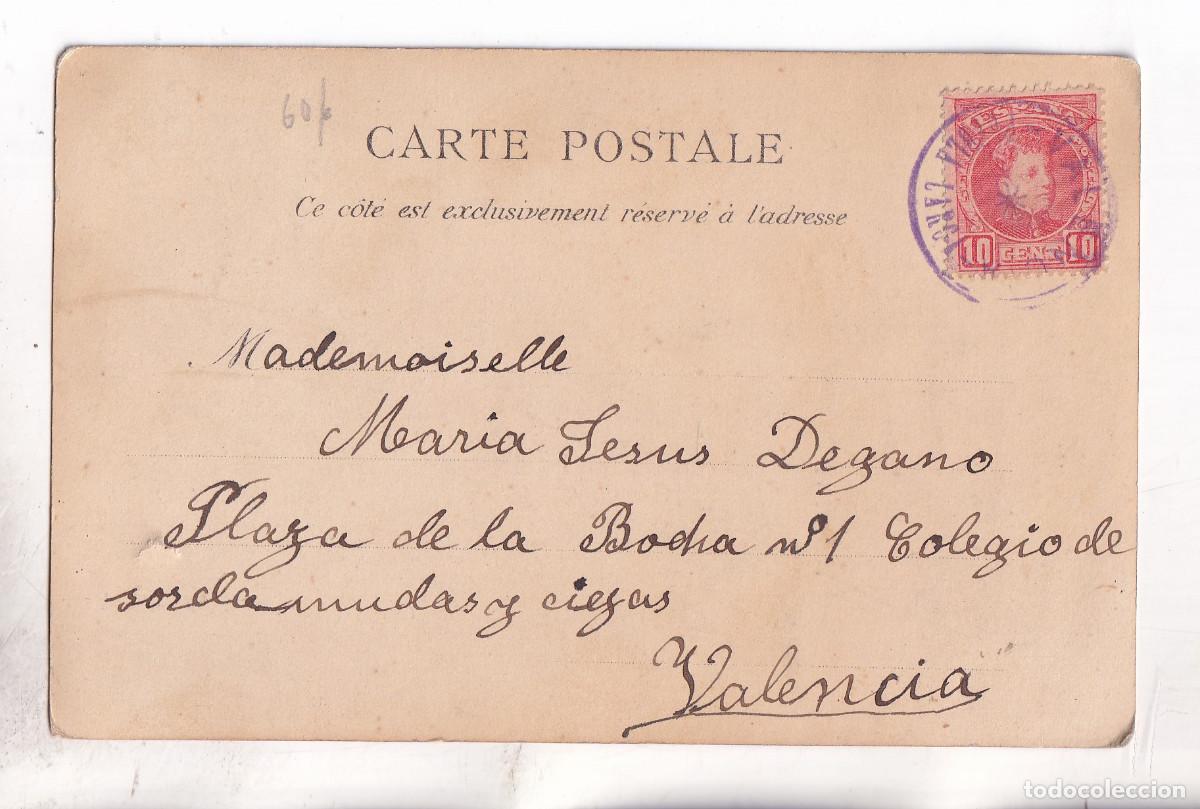 60
CARTE POSTALE
Ce côté est exclusivement réservé à l'adresse
10 CENT 10
Mademoiselle
Maria Jesus Degano
Plaza de la Bocha nº 1 Colegio de
sordamudas y ciegas
Valencia
todocoleccion